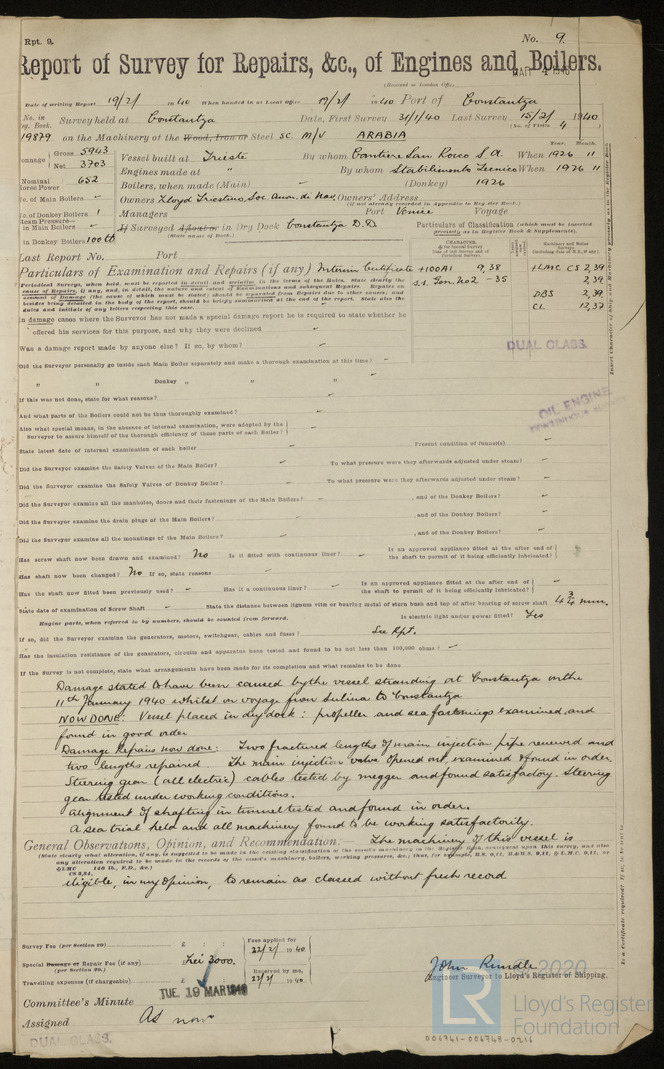 Rpt. 9.
No. 9.
Report of Survey for Repairs, &c., of Engines and Boilers.
(Received at London Office
Date of writing Report 19/2/ 1940 When handed in at Local Office 19/2/ 1940 Port of Constantza
No. in Survey held at Constantza Date, First Survey 31/1/40 Last Survey 15/2/ 1940
Reg. Book. (No. of Visits 4)
19879 on the Machinery of the Wood, Iron or Steel sc. M/V ARABIA
Year. Month.
Gross 5943 Vessel built at Trieste By whom Cantiere San Rocco S.A. When 1926 11
Net 3703
Engines made at " By whom Stabilimento Tecnico When 1926 11
Nominal Horse Power 652
Boilers, when made (Main) - (Donkey) 1926
No. of Main Boilers -
Owners Lloyd Triestino Soc. Anon. di Nav. Owners' Address
(if not already recorded in Appendix to Register Book.)
No. of Donkey Boilers 1 Managers Port Venice Voyage
Steam Pressure
in Main Boilers - If Surveyed Afloat or in Dry Dock Constantza D.D.
(State name of Dock.)
in Donkey Boilers 100 lb
Particulars of Classification (which must be inserted
precisely as in Register Book & Supplements).
Last Report No. Port
Particulars of Examination and Repairs (if any) Interim Certificate
+100A1 9,38
s.s. Gen. No2 - 35
+LMC CS 2,39
2,39
DBS 2,39
CL 12,37
DUAL CLASS.
In damage cases where the Surveyor has not made a special damage report he is required to state whether he
offered his services for this purpose, and why they were declined
Was a damage report made by anyone else? If so, by whom?
Did the Surveyor personally go inside each Main Boiler separately and make a thorough examination at this time? -
" " Donkey " " "
If this was not done, state for what reasons?
And what parts of the Boilers could not be thus thoroughly examined?
OIL ENGINE
Also what special means, in the absence of internal examination, were adopted by the
Surveyor to assure himself of the thorough efficiency of these parts of each Boiler?
State latest date of internal examination of each boiler Present condition of funnel(s)
Did the Surveyor examine the Safety Valves of the Main Boiler? To what pressure were they afterwards adjusted under steam?
Did the Surveyor examine the Safety Valves of Donkey Boiler? To what pressure were they afterwards adjusted under steam?
Did the Surveyor examine all the manholes, doors and their fastenings of the Main Boilers? , and of the Donkey Boilers?
Did the Surveyor examine the drain plugs of the Main Boilers? , and of the Donkey Boilers?
Did the Surveyor examine all the mountings of the Main Boilers? , and of the Donkey Boilers?
Has screw shaft now been drawn and examined? No Is it fitted with continuous liner? - Is an approved appliance fitted at the after end of
the shaft to permit of it being efficiently lubricated?
Has shaft now been changed? No If so, state reasons
Has the shaft now fitted been previously used? - Has it a continuous liner? - Is an approved appliance fitted at the after end of
the shaft to permit of it being efficiently lubricated?
State date of examination of Screw Shaft - State the distance between lignum vitæ or bearing metal of stern bush and top of after bearing of screw shaft 4 3/4 mm.
Engine parts, when referred to by numbers, should be counted from forward. Is electric light and/or power fitted? Yes
If so, did the Surveyor examine the generators, motors, switchgear, cables and fuses? See Rpt.
Has the insulation resistance of the generators, circuits and apparatus been tested and found to be not less than 100,000 ohms? -
If the Survey is not complete, state what arrangements have been made for its completion and what remains to be done
Damage stated to have been caused by the vessel stranding at Constantza on the
11th January 1940 whilst on voyage from Sulina to Constantza
NOW DONE: Vessel placed in dry dock: propeller and sea fastenings examined, and
found in good order
Damage Repairs now done: Two fractured lengths of main injection pipe renewed and
two lengths repaired. The main injection valve opened out, examined & found in order.
Steering gear (all electric) cables tested by megger and found satisfactory. Steering
gear tested under working conditions.
Alignment of shafting in tunnel tested and found in order.
A sea trial held and all machinery found to be working satisfactorily.
General Observations, Opinion, and Recommendation:- The machinery of this vessel is
eligible, in my opinion, to remain as classed without fresh record
Survey Fee (per Section 29) £ : : Fees applied for
22/2/ 1940
Special Damage or Repair Fee (if any) Lei 3000.
(per Section 29.)
Received by me,
Travelling expenses (if chargeable) £ : : 22/2/ 1940
John Rundle
Engineer Surveyor to Lloyd's Register of Shipping.
2020
TUE. 19 MAR 1940
Committee's Minute
Assigned As now
DUAL CLASS.
LR
Lloyd's Register
Foundation
006741-006748-0216